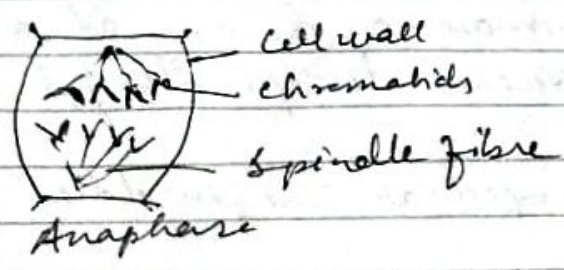 Cell wall
chromatids
Spindle fibre
Anaphase